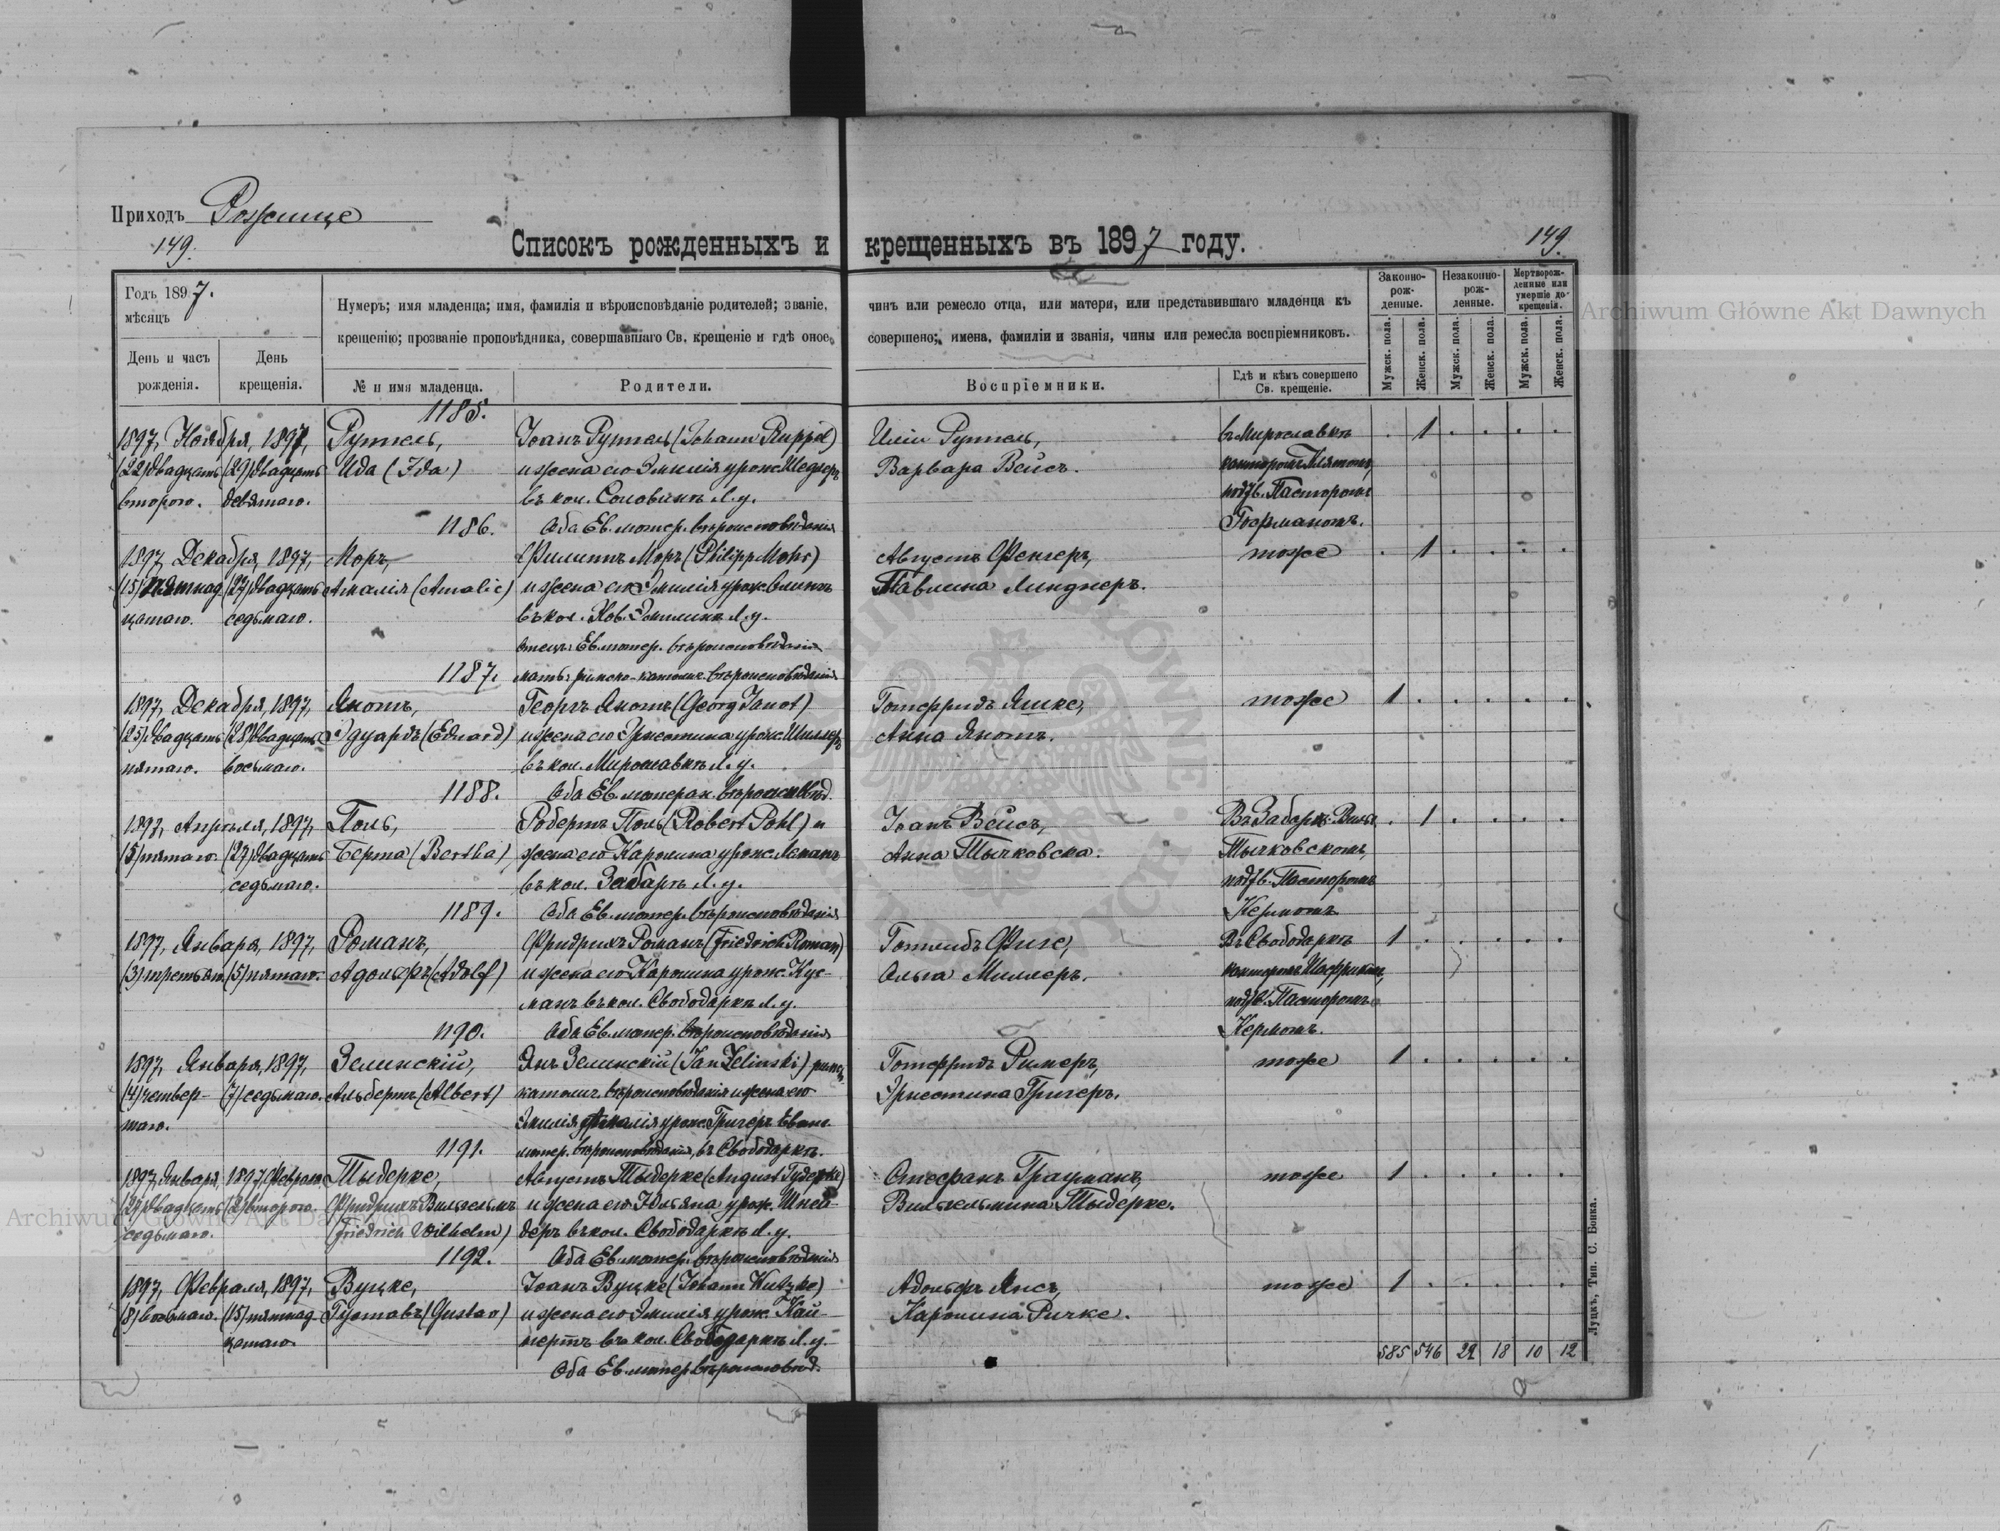 Приходъ Рожище
149.
149.
Списокъ рожденныхъ и крещенныхъ въ 1897 году.
Годъ 1897.
мѣсяцъ
День и часъ рожденія.
День крещенія.
Нумеръ; имя младенца; имя, фамилія и вѣроисповѣданіе родителей; званіе,
крещенію; прозваніе проповѣдника, совершавшаго Св. крещеніе и гдѣ оное
№ и имя младенца.
Родители.
чинъ или ремесло отца, или матери, или представившаго младенца къ
совершено; имена, фамиліи и званія, чины или ремесла воспріемниковъ.
Воспріемники.
Гдѣ и кѣмъ совершено Св. крещеніе.
Законно-рож-денные.
Незаконно-рож-денные.
Мертворож-денные или умершіе до крещенія.
Мужск. пола.
Женск. пола.
Мужск. пола.
Женск. пола.
Мужск. пола.
Женск. пола.
1185.
1897, Ноября, 1897, Руппель, Іоанъ Руппель (Johann Ruppel) Руппель, въ Мирославкѣ 1
(22) двадцать (29) двадцать Ида (Ida) и жена его Эмилія урож. Варвара Вейсъ. канторомъ
второго. девятаго. въ кол. Л. у. подтв. Пасторомъ
1186. Оба Ев. лютер. вѣроисповѣданія
1897, Декабря, 1897, Моръ, Филиппъ Моръ (Philipp Mohr) Августъ Фенгеръ, тоже 1
(15) пятнад (27) двадцать Амалія (Amalie) и жена его Эмилія урож. Павлина Линднеръ.
цатаго. седьмаго. въ кол. Нов. Л. у.
отецъ: Ев. лютер. вѣроисповѣданія
1187. мать: римско-католич. вѣроисповѣданія
1897, Декабря, 1897, Янотъ, Георгъ Янотъ (Georg Janot) Готфридъ Яшке, тоже 1
(25) двадцать (28) двадцать Эдуардъ (Eduard) и жена его Эрнстина урож. Шиллеръ Анна Янотъ.
пятаго. восьмаго. въ кол. Мирославкѣ Л. у.
1188. Оба Ев. лютеран. вѣроисповѣд.
1897, Апрѣля, 1897, Поль, Робертъ Поль (Robert Pohl) и Іоанъ Вейсъ, 1
(5) пятаго. (27) двадцать Берта (Bertha) жена его Каролина урож. Анна Тычковска. Тычковскомъ,
седьмаго. въ кол. Забара Л. у. подтв. Пасторомъ
1189. Оба Ев. лютер. вѣроисповѣданія Кермомъ
1897, Января, 1897, Романъ, Фридрихъ Романъ (Friedrich Roman) Готлибъ въ Свободаркѣ 1
(3) третьяго (5) пятаго. Адольфъ (Adolf) и жена его Каролина урож. Кус- Ольга Миллеръ. канторомъ
манъ въ кол. Свободаркѣ Л. у. подтв. Пасторомъ
1190. Оба Ев. лютер. вѣроисповѣданія Кермомъ.
1897, Января, 1897, Зелинскій, Янъ Зелинскій (Jan Zelinski) римск. Готфридъ Ригеръ, тоже 1
(4) четвер- (7) седьмаго. Альбертъ (Albert) католич. вѣроисповѣданія и жена его Эрнстина Григеръ.
таго. Эмилія Амалія урож. Григеръ Еванг.
1191. лютер. вѣроисповѣданія, въ Свободаркѣ.
1897, Января 1897, Февраля Тыдерке, Августъ Тыдерке (August Tyderke) Стефанъ Грауманъ, тоже 1
(27) двадцать (2) второго. Фридрихъ Вильгельмъ и жена его Юльяна урож. Шней- Вильгельмина Тыдерке.
седьмаго. (Friedrich Wilhelm) деръ въ кол. Свободаркѣ Л. у.
1192. Оба Ев. лютер. вѣроисповѣданія
1897, Февраля, 1897, Вуцке, Іоанъ Вуцке (Johann Wutzke) Адольфъ Янсъ, тоже 1
(8) восьмаго. (15) пятнад- Густавъ (Gustav) и жена его Эмилія урож. Кай- Каролина Ричке.
цатаго. нертъ въ кол. Свободаркѣ Л. у.
Оба Ев. лютер. вѣроисповѣд.
585 546 22 18 10 12
Луцкъ, Тип. С. Бонка.
Archiwum Główne Akt Dawnych
Archiwum Główne Akt Dawnych